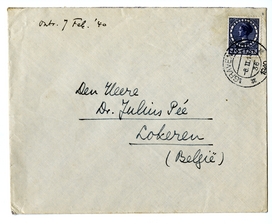 Ontv. 7 Feb. '40
Den Heere
Dr. Julius Pée
Lokeren
(België)